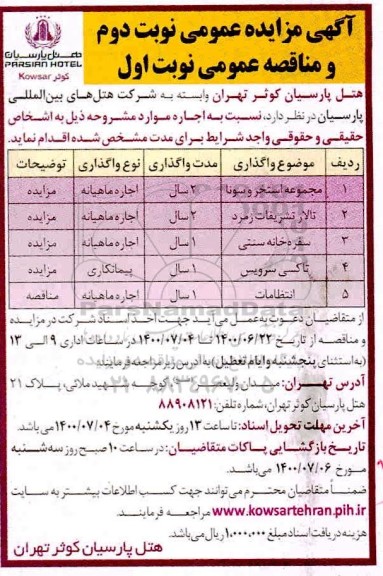 آگهی مزایده عمومی نوبت دوم
و مناقصه عمومی نوبت اول
هتل پارسیان
PARSIAN HOTEL
کوثر Kowsar
هتل پارسیان کوثر تهران وابسته به شرکت هتل‌های بین‌المللی
پارسیان در نظر دارد، نسبت به اجاره موارد مشروحه ذیل به اشخاص
حقیقی و حقوقی واجد شرایط برای مدت مشخص شده اقدام نماید.
ردیف موضوع واگذاری مدت واگذاری نوع واگذاری توضیحات
۱ مجموعه استخر و سونا ۲ سال اجاره ماهیانه مزایده
۲ تالار تشریفات زمرد ۲ سال اجاره ماهیانه مزایده
۳ سفره‌خانه سنتی ۱ سال اجاره ماهیانه مزایده
۴ تاکسی سرویس ۱ سال پیمانکاری مزایده
۵ انتظامات ۱ سال اجاره ماهیانه مناقصه
از متقاضیان دعوت به عمل می آید جهت اخذ اسناد شرکت در مزایده
و مناقصه از تاریخ ۱۴۰۰/۰۶/۲۲ تا ۱۴۰۰/۰۷/۰۴ در ساعات اداری ۹ الی ۱۳
(به استثنای پنجشنبه و ایام تعطیل) به آدرس زیر مراجعه فرمایند.
آدرس تهران: میدان ولیعصر (عج)، کوچه شهید ملائی، پلاک ۲۱
هتل پارسیان کوثر تهران، شماره تلفن: ۸۸۹۰۸۱۲۱
آخرین مهلت تحویل اسناد: تا ساعت ۱۳ روز یکشنبه مورخ ۱۴۰۰/۰۷/۰۴ می باشد.
تاریخ بازگشایی پاکات متقاضیان: در ساعت ۱۰ صبح روز سه‌شنبه
مورخ ۱۴۰۰/۰۷/۰۶ می‌باشد.
ضمناً متقاضیان محترم می‌توانند جهت کسب اطلاعات بیشتر به سایت
www.kowsartehran.pih.ir مراجعه فرمایند.
هزینه دریافت اسناد مبلغ ۱,۰۰۰,۰۰۰ ریال می‌باشد.
هتل پارسیان کوثر تهران